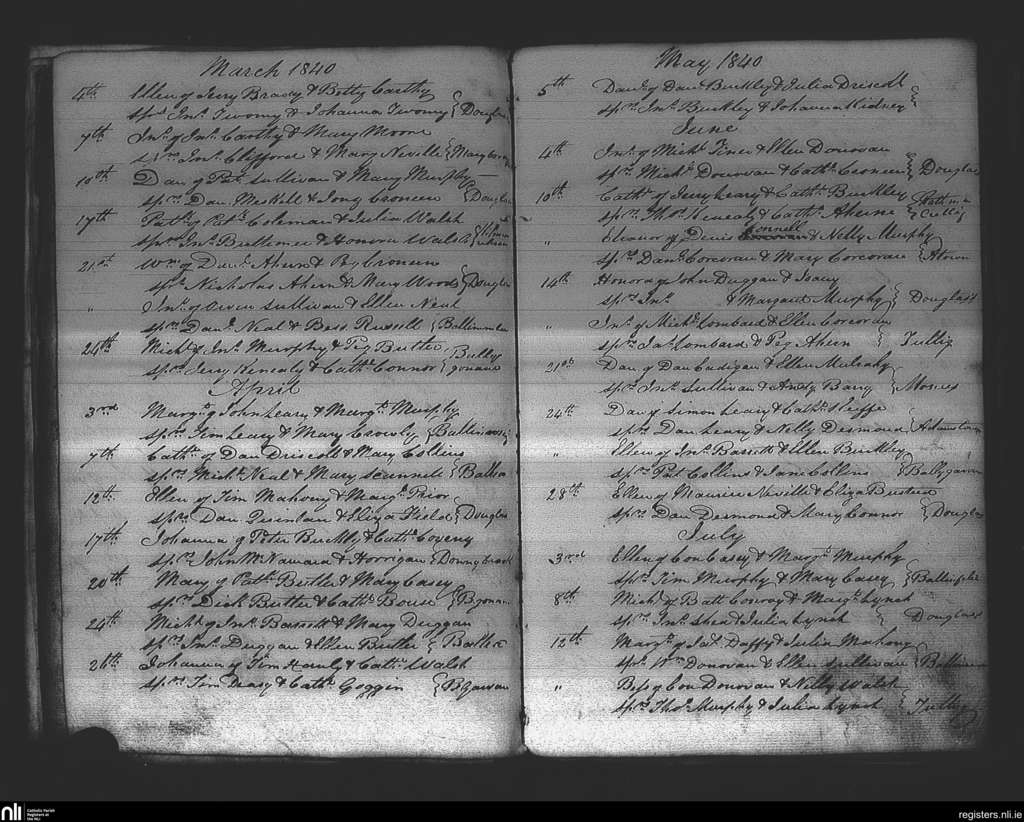 March 1840
4th Ellen of Jerry Brady & Betty Carthy
sprs Jno. Twomy & Johanna Twomy } Douglas
7th Jno. of Jno. Carthy & Mary Moore
sprs Jno. Clifford & Mary Neville
10th Dan of Patk. Sullivan & Mary Murphy
sprs Dan. Meskill & Croneen } Douglas
17th Patk. of Patk. Coleman & Julia Walsh
sprs Jno. & Honora Walsh
21st Wm. of Danl. Ahern & Croneen
sprs Nicholas Ahern & Mary Woods } Douglas
" Jno. of Owen Sullivan & Ellen Neal
sprs Danl. Neal & Bess Russell
24th Michl. of Jno. Murphy & Peg Butler
sprs Jerry Henealy & Cathe. Connor
April
3rd Margt. of John Leary & Margt. Murphy
sprs Tim Leary & Mary Crowly
7th Cathe. of Dan Driscoll & Mary Collins
sprs Michl. Neal & Mary
12th Ellen of Tim Mahony & Margt. Prior
sprs Dan Quinlan & Eliza Field } Douglas
17th Johanna of Peter Buckly & Cathe. Coveny
sprs John McNamara & Horrigan
20th Mary of Patk. Butler & Mary Casey
sprs Dick Butler & Cathe.
24th Michl. of Jno. Bassett & Mary Duggan
sprs Jno. Duggan & Ellen Butler
26th Johanna of Tim & Cathe. Walsh
sprs Tim & Cathe. Goggin } Bgarvan
May 1840
5th Danl. of Danl. Buckley & Julia Driscoll
sprs Jno. Buckley & Johanna Kidney
June
4th Jno. of Michl. & Ellen Donovan
sprs Michl. Donovan & Cathe. Croneen } Douglas
10th Cathe. of Jerry Leary & Cathe. Buckley
sprs Thos. Henealy & Cathe. Aherne
" Eleanor of Denis Connell & Nelly Murphy
sprs Danl. Corcoran & Mary Corcoran
14th Honora of John Duggan &
sprs Jno. & Margaret Murphy } Douglass
" Jno. of Michl. Lombard & Ellen Corcoran
sprs Jas. Lombard & Peg Ahern } Tullig
21st Dan of Dan Cadigan & Ellen Mulcahy
sprs Jno. Sullivan & Andy Barry
24th Dan of Simon Leary & Cathe. Keeffe
sprs Dan Leary & Nelly Desmond
" Ellen of Jno. Bassett & Ellen Buckley
sprs Pat Collins & Jane Collins } Ballygarvan
28th Ellen of Maurice Neville & Eliza Busteed
sprs Dan Desmond & Mary Connor } Douglas
July
3rd Ellen of Con Casey & Margt. Murphy
sprs Tim Murphy & Mary Casey
8th Michl. of Batt Conroy & Margt. Lynch
sprs Jno. Shea & Julia Lynch } Douglass
12th Margt. of Jas. Daffy & Julia Mahony
sprs Wm. Donovan & Ellen Sullivan
" Bess of Con Donovan & Nelly Walsh
sprs Thos. Murphy & Julia Lynch } Tullig
nli Catholic Parish Registers at the NLI
registers.nli.ie